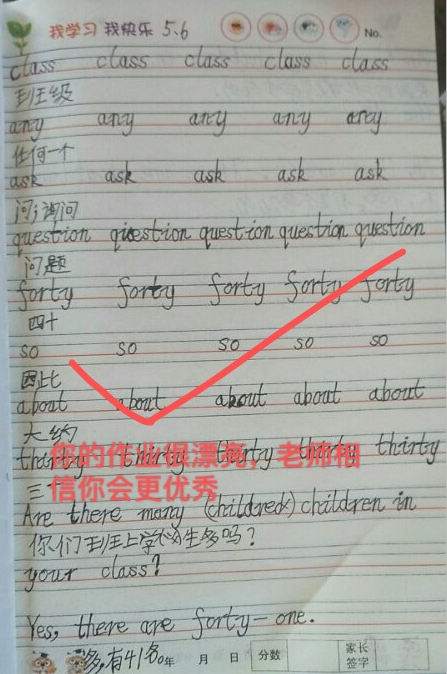 我学习 我快乐 5.6 No.
class class class class class
班级
any any any any any
任何一个
ask ask ask ask ask
问;询问
question question question question question
问题
forty forty forty forty forty
四十
so so so so so
因此
about about about about about
大约
thirty thirty thirty thirty thirty
你的作业很漂亮，老师相
信你会更优秀
三十
Are there many (childred) children in
你们班上学生多吗?
your class?
Yes, there are forty-one.
多,有41名。 年 月 日 分数 家长签字